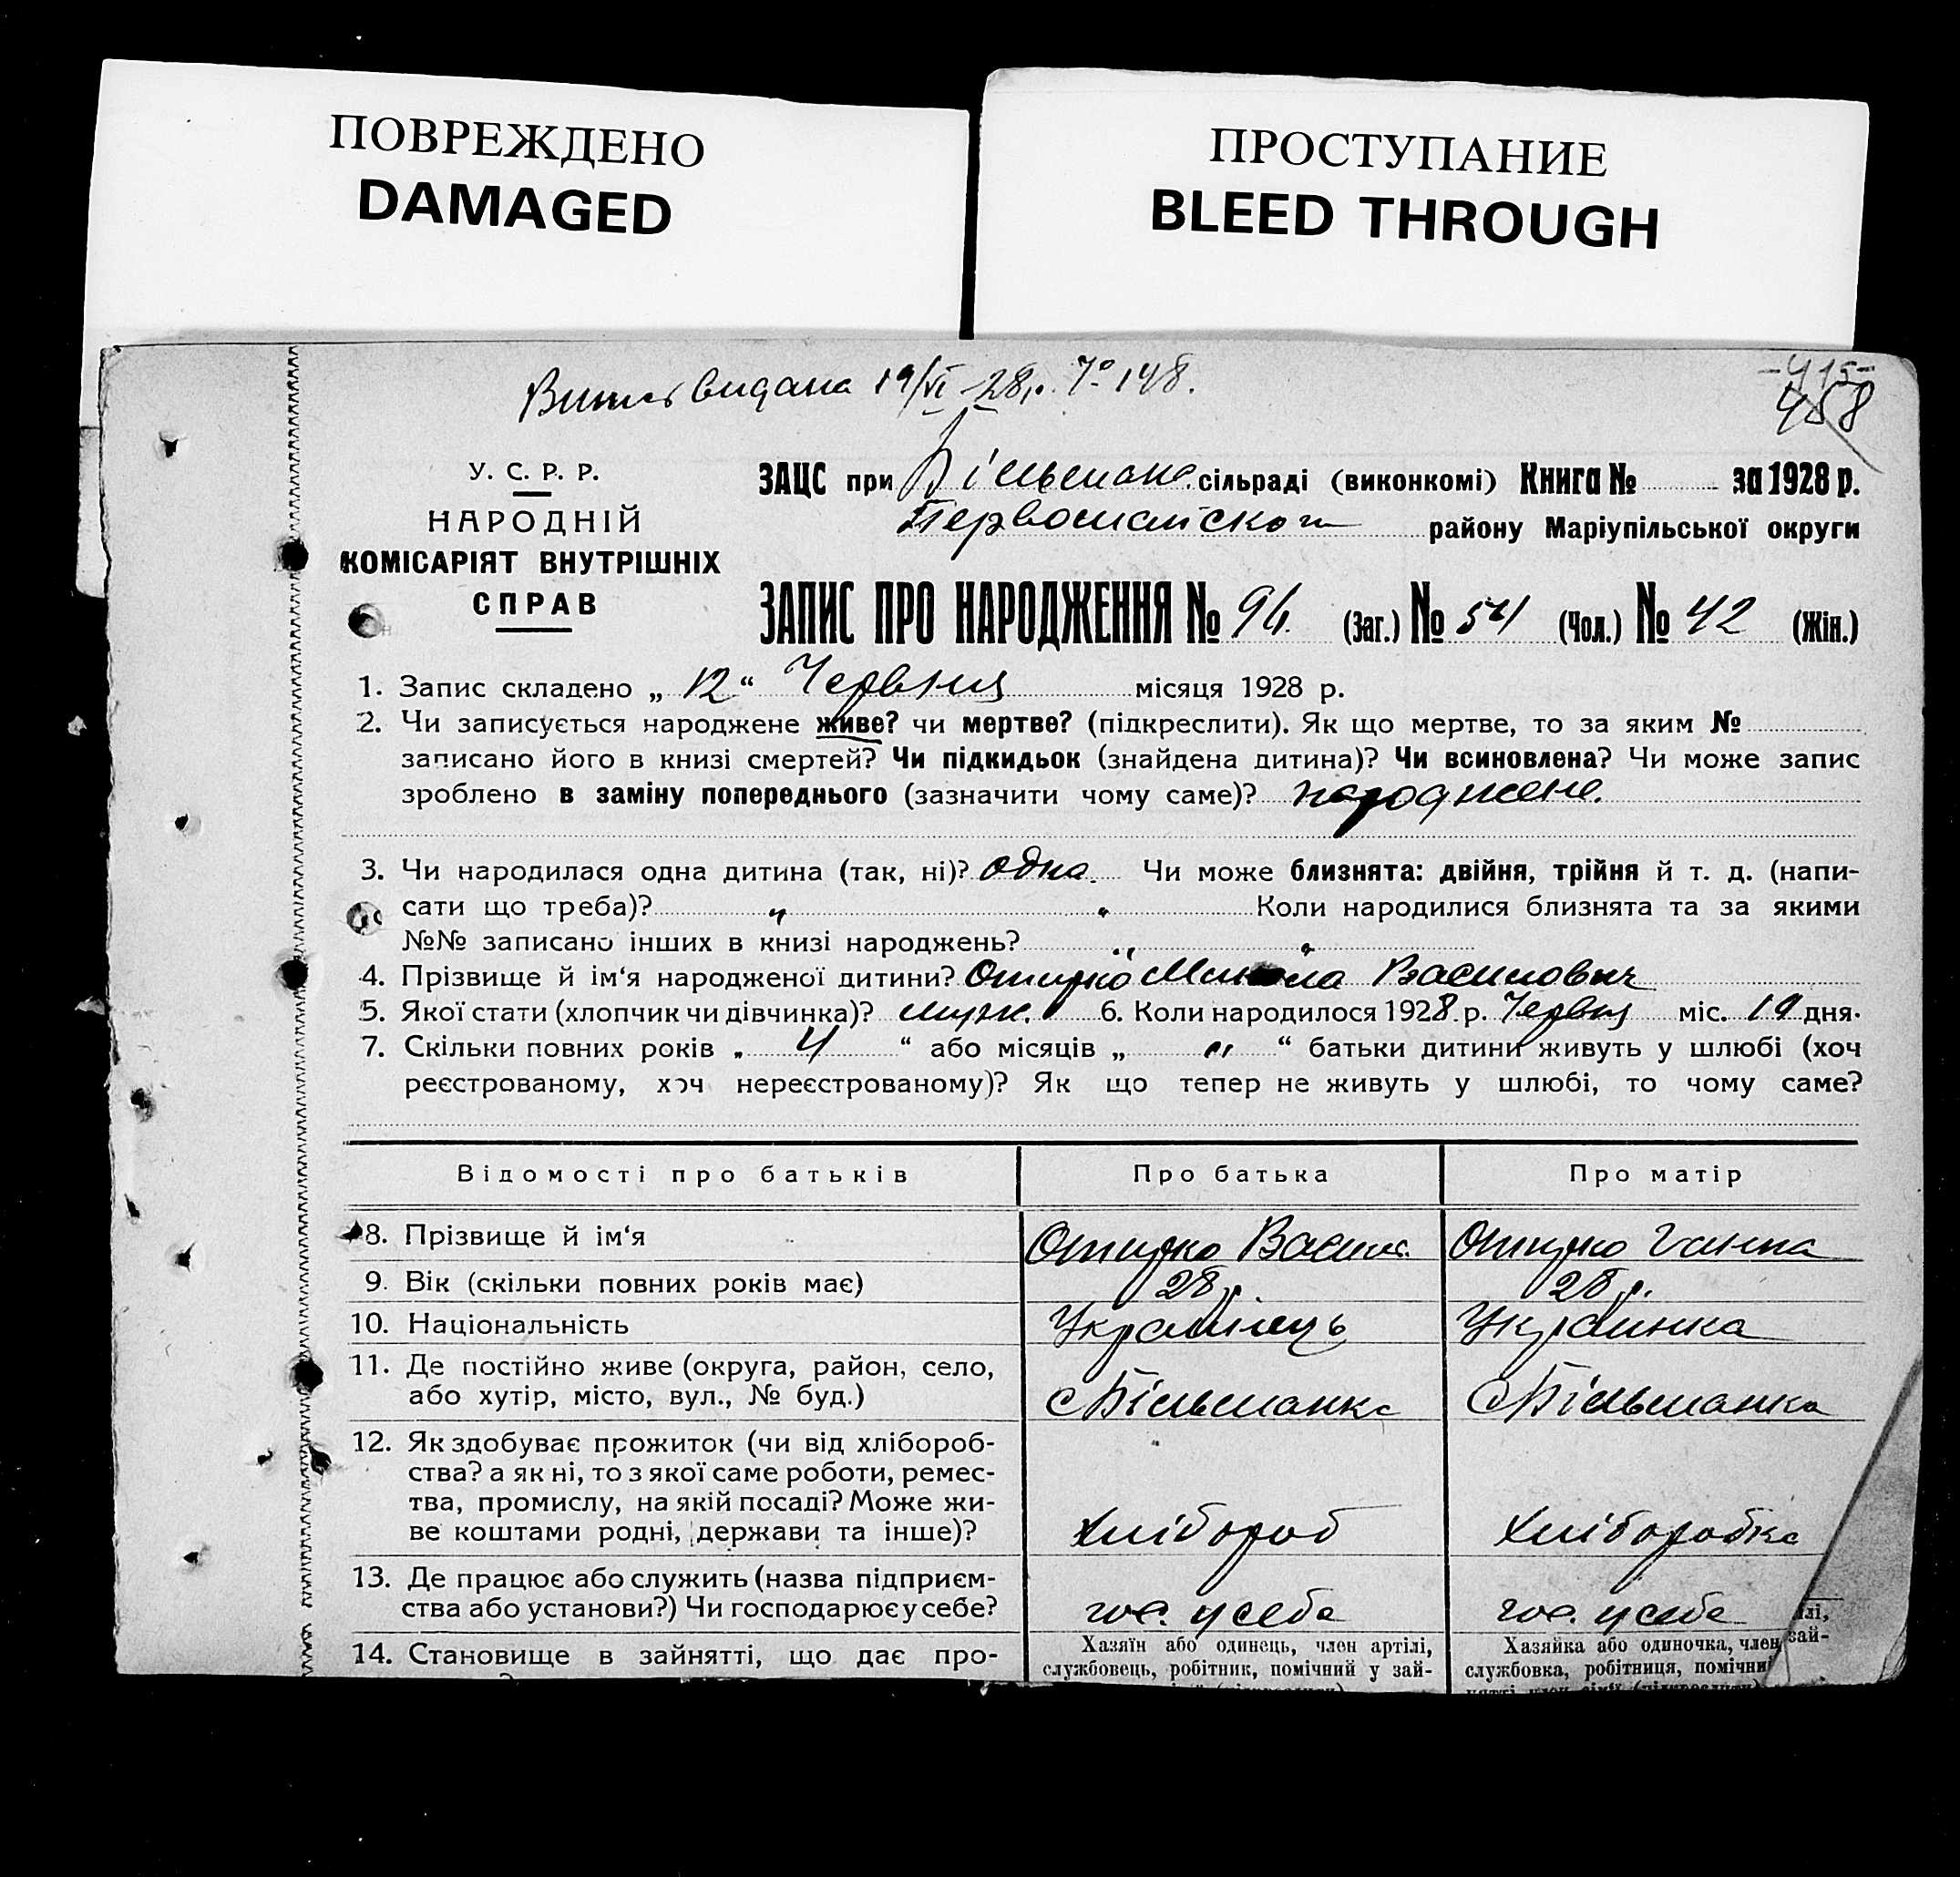 ПОВРЕЖДЕНО
DAMAGED
ПРОСТУПАНИЕ
BLEED THROUGH
видана 19/VI-28р. № 148.
-415-
458
У. С. Р. Р.
НАРОДНІЙ
КОМІСАРІЯТ ВНУТРІШНІХ
СПРАВ
ЗАЦС при Більманс. сільраді (виконкомі) Книга № за 1928 р.
Первомайског районy Маріупільської округи
ЗАПИС ПРО НАРОДЖЕННЯ № 96. (Заг.) № 54 (Чол.) № 42 (Жін.)
1. Запис складено „ 12 “ Червня місяця 1928 р.
2. Чи записується народжене живе? чи мертве? (підкреслити). Як що мертве, то за яким №
записано його в книзі смертей? Чи підкидьок (знайдена дитина)? Чи всиновлена? Чи може запис
зроблено в заміну попереднього (зазначити чому саме)? народжене.
3. Чи народилася одна дитина (так, ні)? одна. Чи може близнята: двійня, трійня й т. д. (напи-
сати що треба)? „ „ Коли народилися близнята та за якими
№№ записано інших в книзі народжень? „ „
4. Прізвище й ім‘я народженої дитини? Микола Василович
5. Якої стати (хлопчик чи дівчинка)? муж. 6. Коли народилося 1928 р. Червня міс. 19 дня.
7. Скільки повних років „ 4 “ або місяців „ „ “ батьки дитини живуть у шлюбі (хоч
реєстрованому, хоч нереєстрованому)? Як що тепер не живуть у шлюбі, то чому саме?
Відомості про батьків Про батька Про матір
8. Прізвище й ім‘я Василь Ганна
9. Вік (скільки повних років має) 28 р. 28 р.
10. Національність Українець Українка
11. Де постійно живе (округа, район, село,
або хутір, місто, вул., № буд.) с Більманка с Більманка
12. Як здобуває прожиток (чи від хлібороб-
ства? а як ні, то з якої саме роботи, ремес-
тва, промислу, на якій посаді? Може жи-
ве коштами родні, держави та інше)? Хлібороб Хліборобка
13. Де працює або служить (назва підприєм-
ства або установи?) Чи господарює у себе? гос. у себе гос. у себе
14. Становище в зайнятті, що дає про-
Хазяїн або одинець, член артілі,
службовець, робітник, помічний у зай-
Хазяйка або одиночка, член
службовка, робітниця, помічни